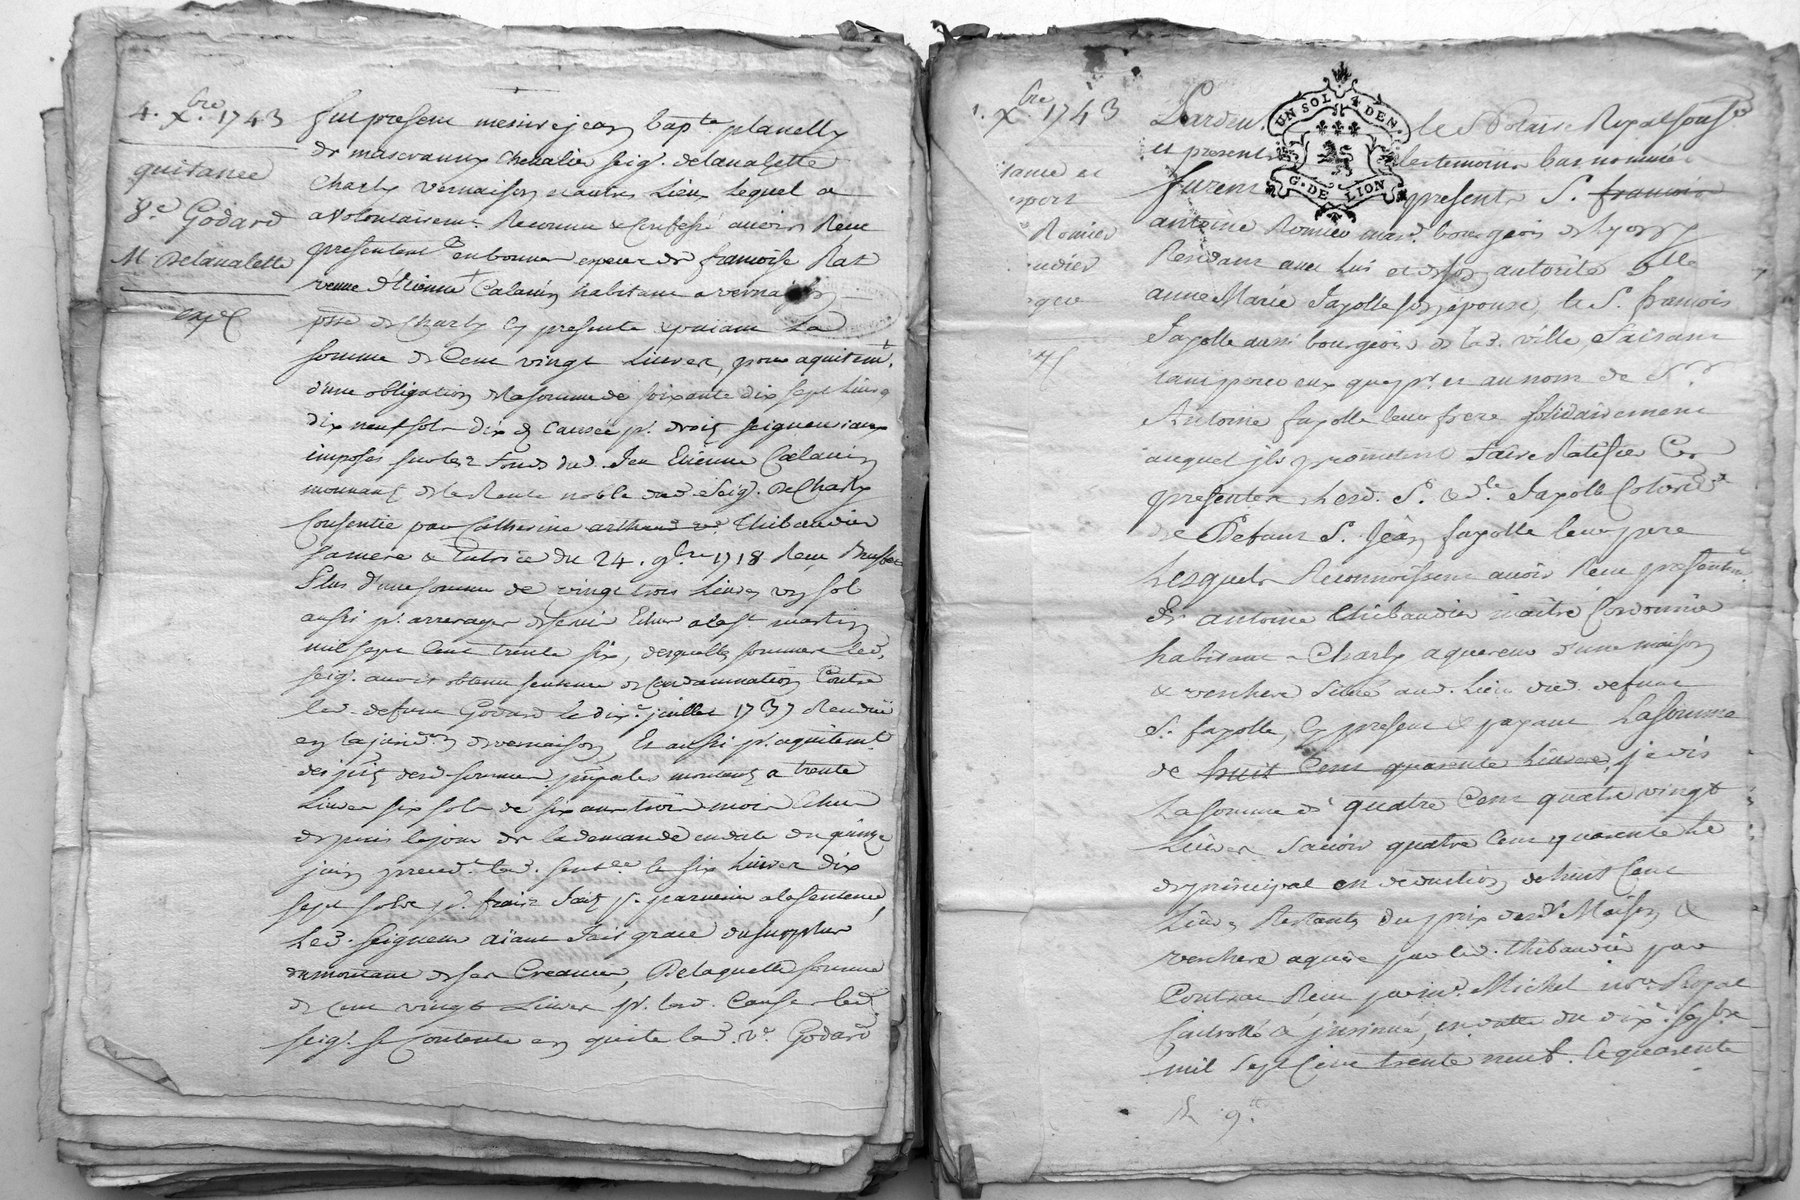 4. Xbre 1743
quitance
Ve Godard
M Delavalette
expé
fut present messire jean bapte planelly
de mascranny Chevalier seigr. delavalette
Charly vernaison et autres Lieux Lequel a
avolontairemt. Reconnu & Confessé avoir Receu
presentemt en bonnes especes de françoise Rat
veuve d'Etienne Calavin habitant a vernaison
psse de Charly Cy presente & paiant La
somme de Cent vingt Livres, pour aquitemt.
d'une obligation de la somme de soixante dix sept Livres
dix neuf sols dix d Causée pr. droits seigneuriaux
imposés sur les fonds dud. feu Etienne Calavin
mouvant de la Rente noble dud. Seigr. De Charly
Consentie par Catherine arthaud ve Thibaudier
sa mere & Tutrice du 24. 9bre 1718 Receu
Plus d'une somme de vingt trois Livres un sol
aussi pr. arrerages de servis Echus a la st martin
mil sept Cent trente six, desquelles sommes led.
seigr. auroit obtenu sentence de Condamnation Contre
led. defunt Godard le dixe. juillet 1737 Rendüe
en la jurisdon de vernaison, Et aussi pr. aquitemt.
des jnts. desd. sommes ppales montent a trente
Livres six sols de six ans trois mois Echus
depuis le jour de la demande en date du quinze
juin preced.t lad. sentce & six Livres dix
sept sols pr. frais faits pr. parvenir a la sentence,
Led. seigneur aïant fait grace du surplus
du montant de ses Creances, De laquelle somme
de Cent vingt Livres pr. lesd. Causes led.
seigr. se Contente en quitte lad. ve. Godard
1. Xbre 1743
tance et
port
Romier
udier
Pardevt. le Nore Royal soussé
UN SOL 4 DEN.
G. DE LION
et presents les temoins bas nommés
furent presents Sr. francois
antoine Romier mard. bourgeois de Lyon
Procedant avec lui et de son autorité Dlle
anne Marie fayolle son epouse, le Sr. francois
fayolle aussi bourgeois de lad. ville faisant
tant pour eux que pr. et au nom de Sr.
Antoine fayolle leur frere solidairement
auquel jls promettent faire Ratifier Ces
presentes lesd. Srs & dlle fayolle
de Defunt Sr. Jean fayolle leur pere
Lesquels Reconnoissent avoir Receu presentemt.
de antoine Thibaudier maitre Cordonnier
habitant a Charly aquereur d'une maison
& verchere situé aud. Lieu dud. defunt
Sr. fayolle, Cy present & payant La somme
de huit Cent quarante Livres, je dis
La somme de quatre Cent quatre vingt
Livres savoir quatre Cent quarante Le
de principal en deduction de huit Cent
Livres Restants du prix desd. Maison &
verchere aquise par led. thibaudier par
Contrat Receu par me. Michel nore. Royal
Controllé & jnsinué, en datte du dixe. septbre
mil sept Cent trente neuf. & quarante